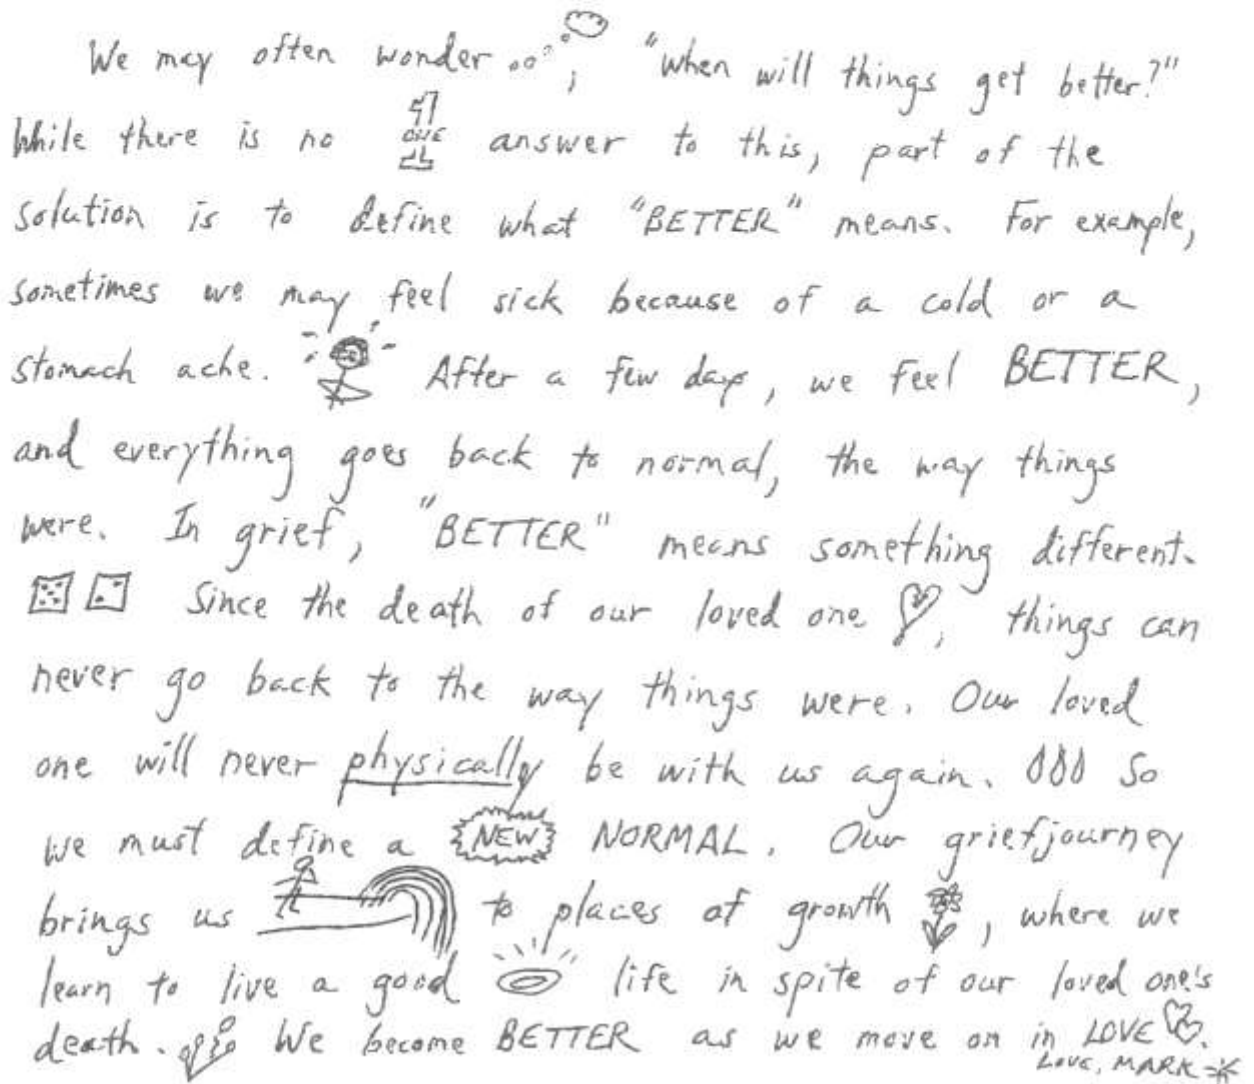 We may often wonder..., "when will things get better?"
While there is no ONE answer to this, part of the
solution is to define what "BETTER" means. For example,
sometimes we may feel sick because of a cold or a
stomach ache. After a few days, we feel BETTER,
and everything goes back to normal, the way things
were. In grief, "BETTER" means something different.
Since the death of our loved one, things can
never go back to the way things were. Our loved
one will never physically be with us again. So
we must define a NEW NORMAL. Our griefjourney
brings us to places of growth, where we
learn to live a good life in spite of our loved one's
death. We become BETTER as we move on in LOVE.
LOVE, MARK